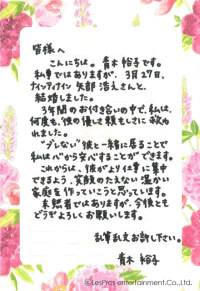 皆様へ
こんにちは。青木裕子です。
私事ではありますが、3月27日、
ナインティナイン 矢部浩之さんと、
結婚しました。
3年間のお付き合いの中で、私は、
何度も、彼の優しさ頼もしさに救わ
れました。
"ブレない"彼と一緒に居ることで
私は心から安心することができます。
これからは、彼がより仕事に集中
できるよう、笑顔のたえない温かい
家庭を作っていこうと思っています。
未熟者ではありますが、今後とも
どうぞよろしくお願いします。
乱筆乱文お許し下さい。
青木 裕子
©LesPros entertainment.Co.,Ltd.